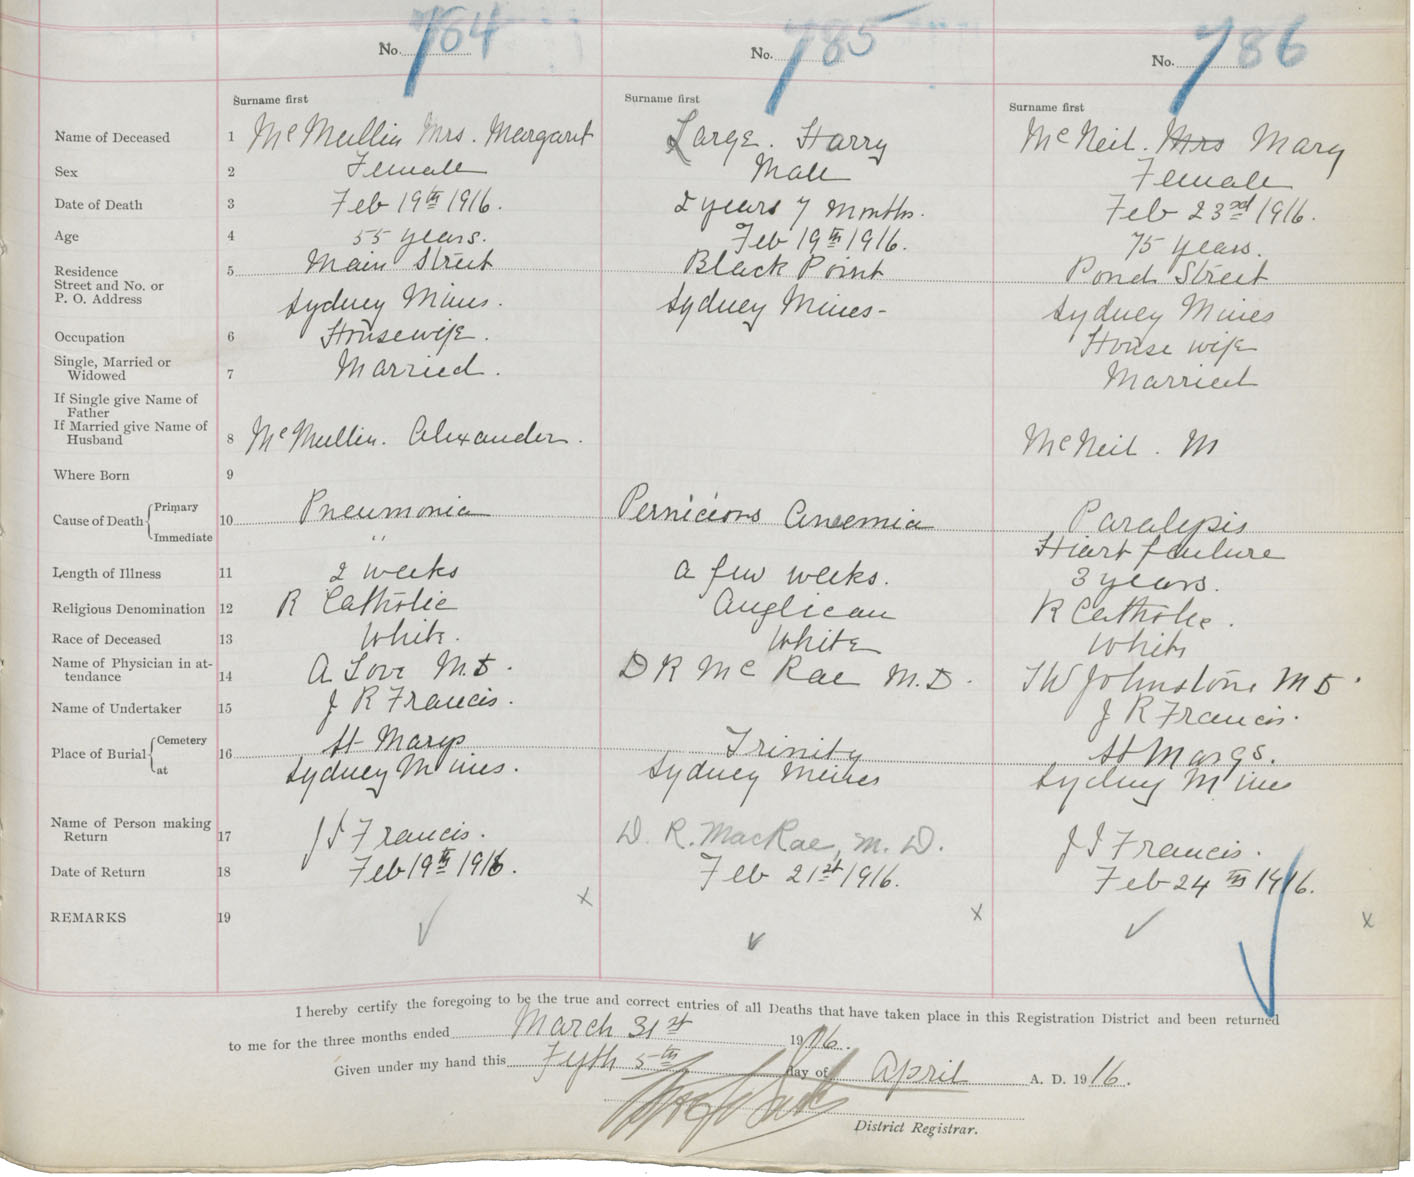 No. 764 No. 785 No. 786
Surname first Surname first Surname first
Name of Deceased 1 McMullin Mrs. Margaret Large. Harry McNeil. Mrs Mary
Sex 2 Female Male Female
Date of Death 3 Feb 19th 1916. 2 years 7 months. Feb 23rd 1916.
Age 4 55 years. Feb 19th 1916. 75 years.
Residence 5 Main Street Black Point Pond Street
Street and No. or
P. O. Address Sydney Mines. Sydney Mines- Sydney Mines
Occupation 6 Housewife. House wife
Single, Married or
Widowed 7 Married. Married
If Single give Name of
Father
If Married give Name of
Husband 8 McMullin. Alexander. McNeil. M
Where Born 9
Cause of Death { Primary 10 Pneumonia Pernicious Anaemia Paralysis
Immediate " Heart failure
Length of Illness 11 2 weeks a few weeks. 3 years.
Religious Denomination 12 R Catholic Anglican R Catholic.
Race of Deceased 13 White. White White
Name of Physician in at-
tendance 14 A Love M.D. D K McRae M.D. T W Johnstone M D.
Name of Undertaker 15 J R Francis. J R Francis.
Place of Burial { Cemetery 16 St Marys Trinity St Marys.
at Sydney Mines. Sydney Mines Sydney Mines
Name of Person making
Return 17 J J Francis. D. R. MacRae, M. D. J J Francis.
Date of Return 18 Feb 19th 1916. Feb 21st 1916. Feb 24th 1916.
REMARKS 19
I hereby certify the foregoing to be the true and correct entries of all Deaths that have taken place in this Registration District and been returned
to me for the three months ended March 31st 1916.
Given under my hand this Fifth 5th day of April A. D. 1916.
District Registrar.